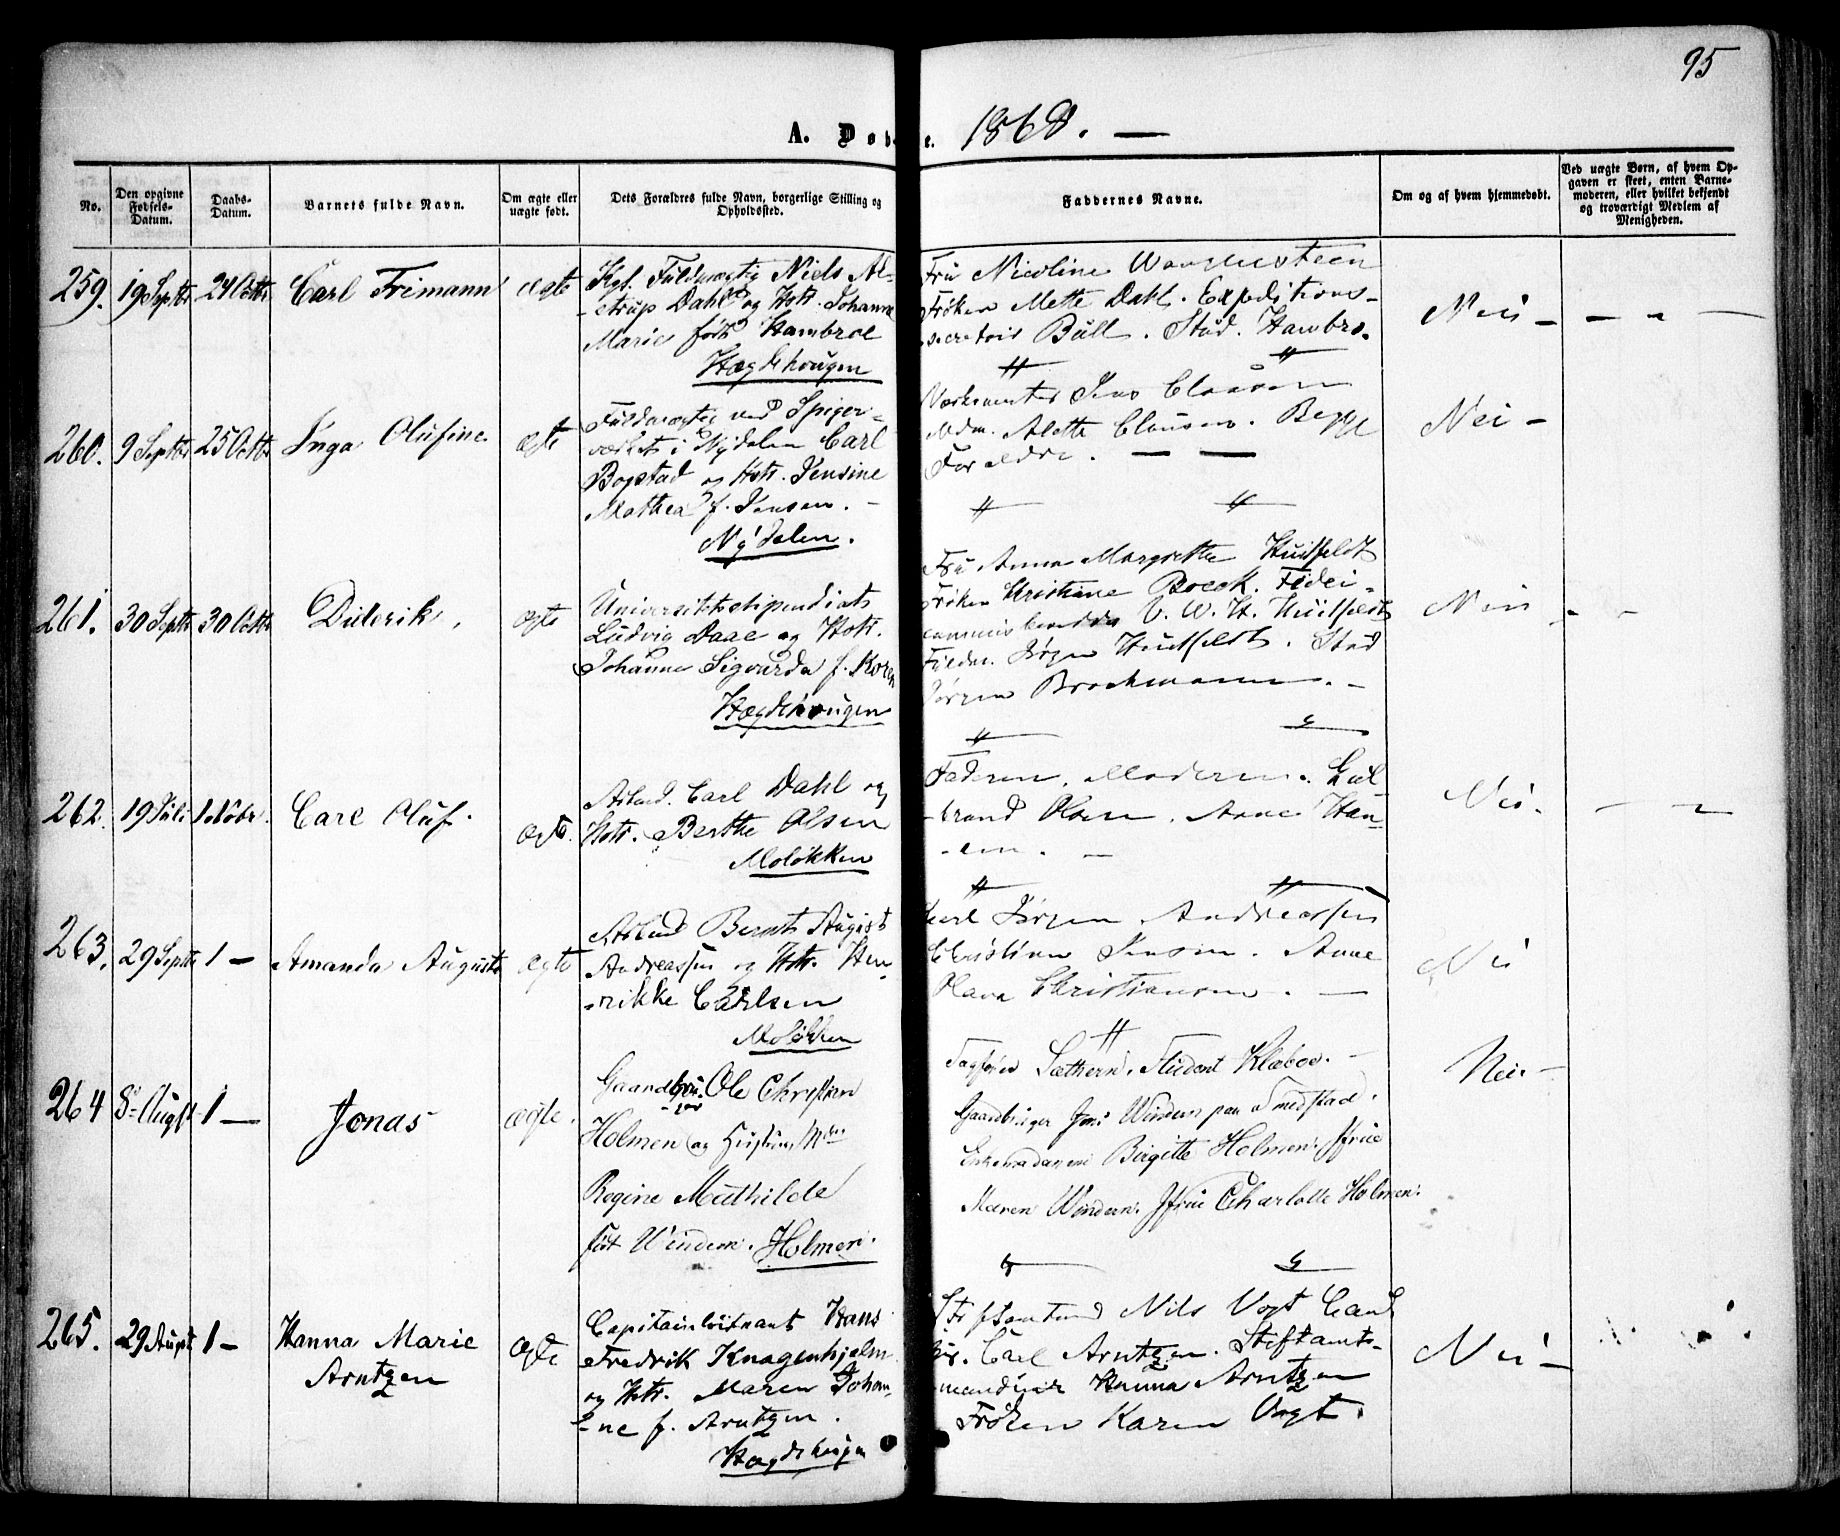 95
A. Døb e. 1868. —
No.
Den opgivne Fødsels-Datum.
Daabs-Datum.
Barnets fulde Navn.
Om ægte eller uægte født.
Dets Forældres fulde Navn, borgerlige Stilling og Opholdssted.
Faddernes Navne.
Om og af hvem hjemmedøbt.
Ved uægte Børn, af hvem Opgaven er skeet, enten Barnemoderen, eller hvilket bekjendt og troværdigt Medlem af Menigheden.
259. 19 Septbr 24 Octbr Carl Frimann ægte
Kgl. Fuldmægtig Niels Al-
-strup Dahl og Hstr. Johanne
Marie født Hambroe
Hægdehougen
Fru Nicoline
Frøken Mette Dahl. Expeditions-
secretair Bull. Stud. Hambro.
Nei — — — —
260. 9 Septbr 25 Octbr Inga Olufine. ægte
Fuldmægtig ved Spiger-
værket i Nydalen Carl
Bogstad og Hstr. Jensine
Mathea f. Jensen. —
Nydalen.
Værksmester Jens Clausen
Mdm. Alette Clausen. Begge
Forældre. — —
Nei —
261. 30 Septbr 30 Octbr Diderik. ægte
Universitetsstipendiat
Ludvig Daae og Hstr.
Johanne Sigvarda f. Koren
Hægdehougen
Fru Anna Margrethe Huitfeldt
Frøken Christiane Boeck. Fidei-
commisbesidder C. W. H. Huitfeldt
Fuldm. Jørgen Huitfeldt. Stud
Jørgen Brochmann. —
Nei — —
262. 19 Juli 1 Novbr. Carl Oluf. ægte.
Arbd. Carl Dahl og
Hstr. Berthe Olsen
Moløkken
Faderen. Moderen. Gul
-brand Olsen. Anne Han-
-sen. —
Nei. — —
263. 29 Septbr 1 — Amanda Auguste ægte
Arbd Bernt August
Andreassen og Hstr. Hen-
-rikke Carlsen
Moløkken
Karl Jørgen Andreassen
Christian Jensen. Anne
Olava Christiansen. —
Nei
264 8de Augst 1 — Jonas ægte.
Gaardbru- Ole Christian
-ger
Holmen og Hustru Mdm
Regine Mathilde
født Windern. Holmen.
Sagfører Sæthern. Student Klæboe. —
Gaardbruger Jens Windern paa Smedstad.
Enkemadamme Birgitte Holmen. Jfrue
Maren Windern. Jfrue Charlotte Holmen.
Nei —
265. 29 Augst 1 — Hanna Marie
Arntzen
ægte
Capitainlieutnant Hans
Fredrik Knagenhjelm
og Hstr. Maren Johan-
-ne f. Arntzen.
Hægdehougen
Stiftsamtmand Nils Vogt Cand
jur. Carl Arntzen. Stiftamt-
mandinde Hanna Arntzen
Frøken Karen Vogt.
Nei —